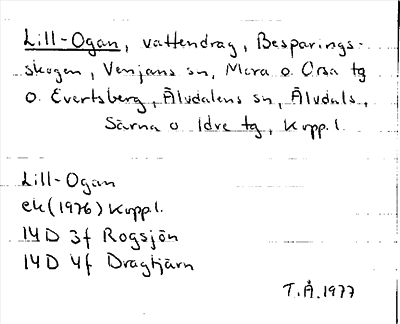 Lill-Ogan, vattendrag, Besparings-
skogen, Venjans sn, Mora o. Orsa tg
o. Evertsberg, Älvdalens sn, Älvdals,
Särna o Idre tg, Kopp.l.
Lill-Ogan
ek (1976) Kopp.l.
14D 3f Rogsjön
14D 4f Dragtjärn
T.Å. 1977